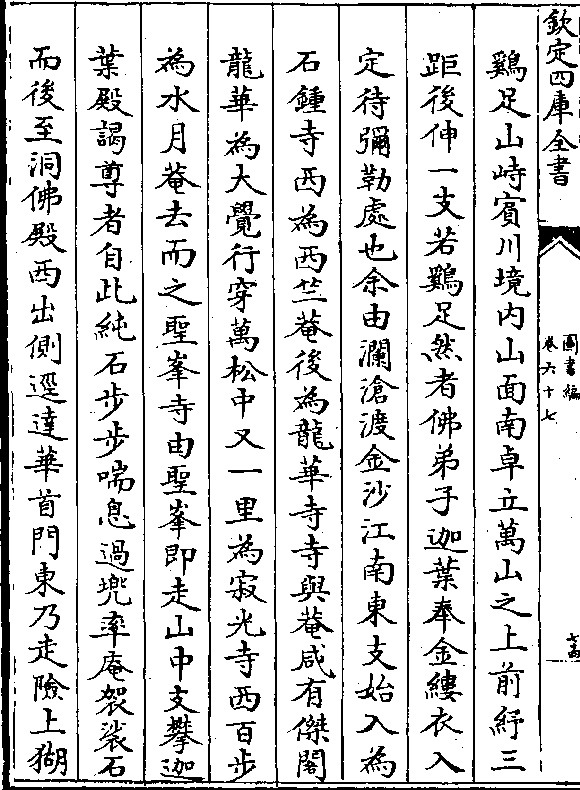 欽定四庫全書
圖書編
卷六十七
鷄足山峙賓川境内山面南卓立萬山之上前紓三
距後伸一支若鷄足然者佛弟子迦葉奉金縷衣入
定待彌勒處也余由瀾滄渡金沙江南東支始入為
石鍾寺西為西竺菴後為龍華寺寺與菴咸有傑閣
龍華為大覺行穿萬松中又一里為寂光寺西百步
為水月菴去而之聖峯寺由聖峯即走山中支攀迦
葉殿謁尊者自此純石步步喘息過兜率庵袈裟石
而後至洞佛殿西出側逕達華首門東乃走險上猢